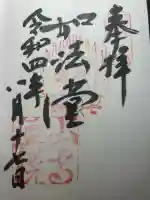 奉拝
如法堂
令和四年
八月十七日